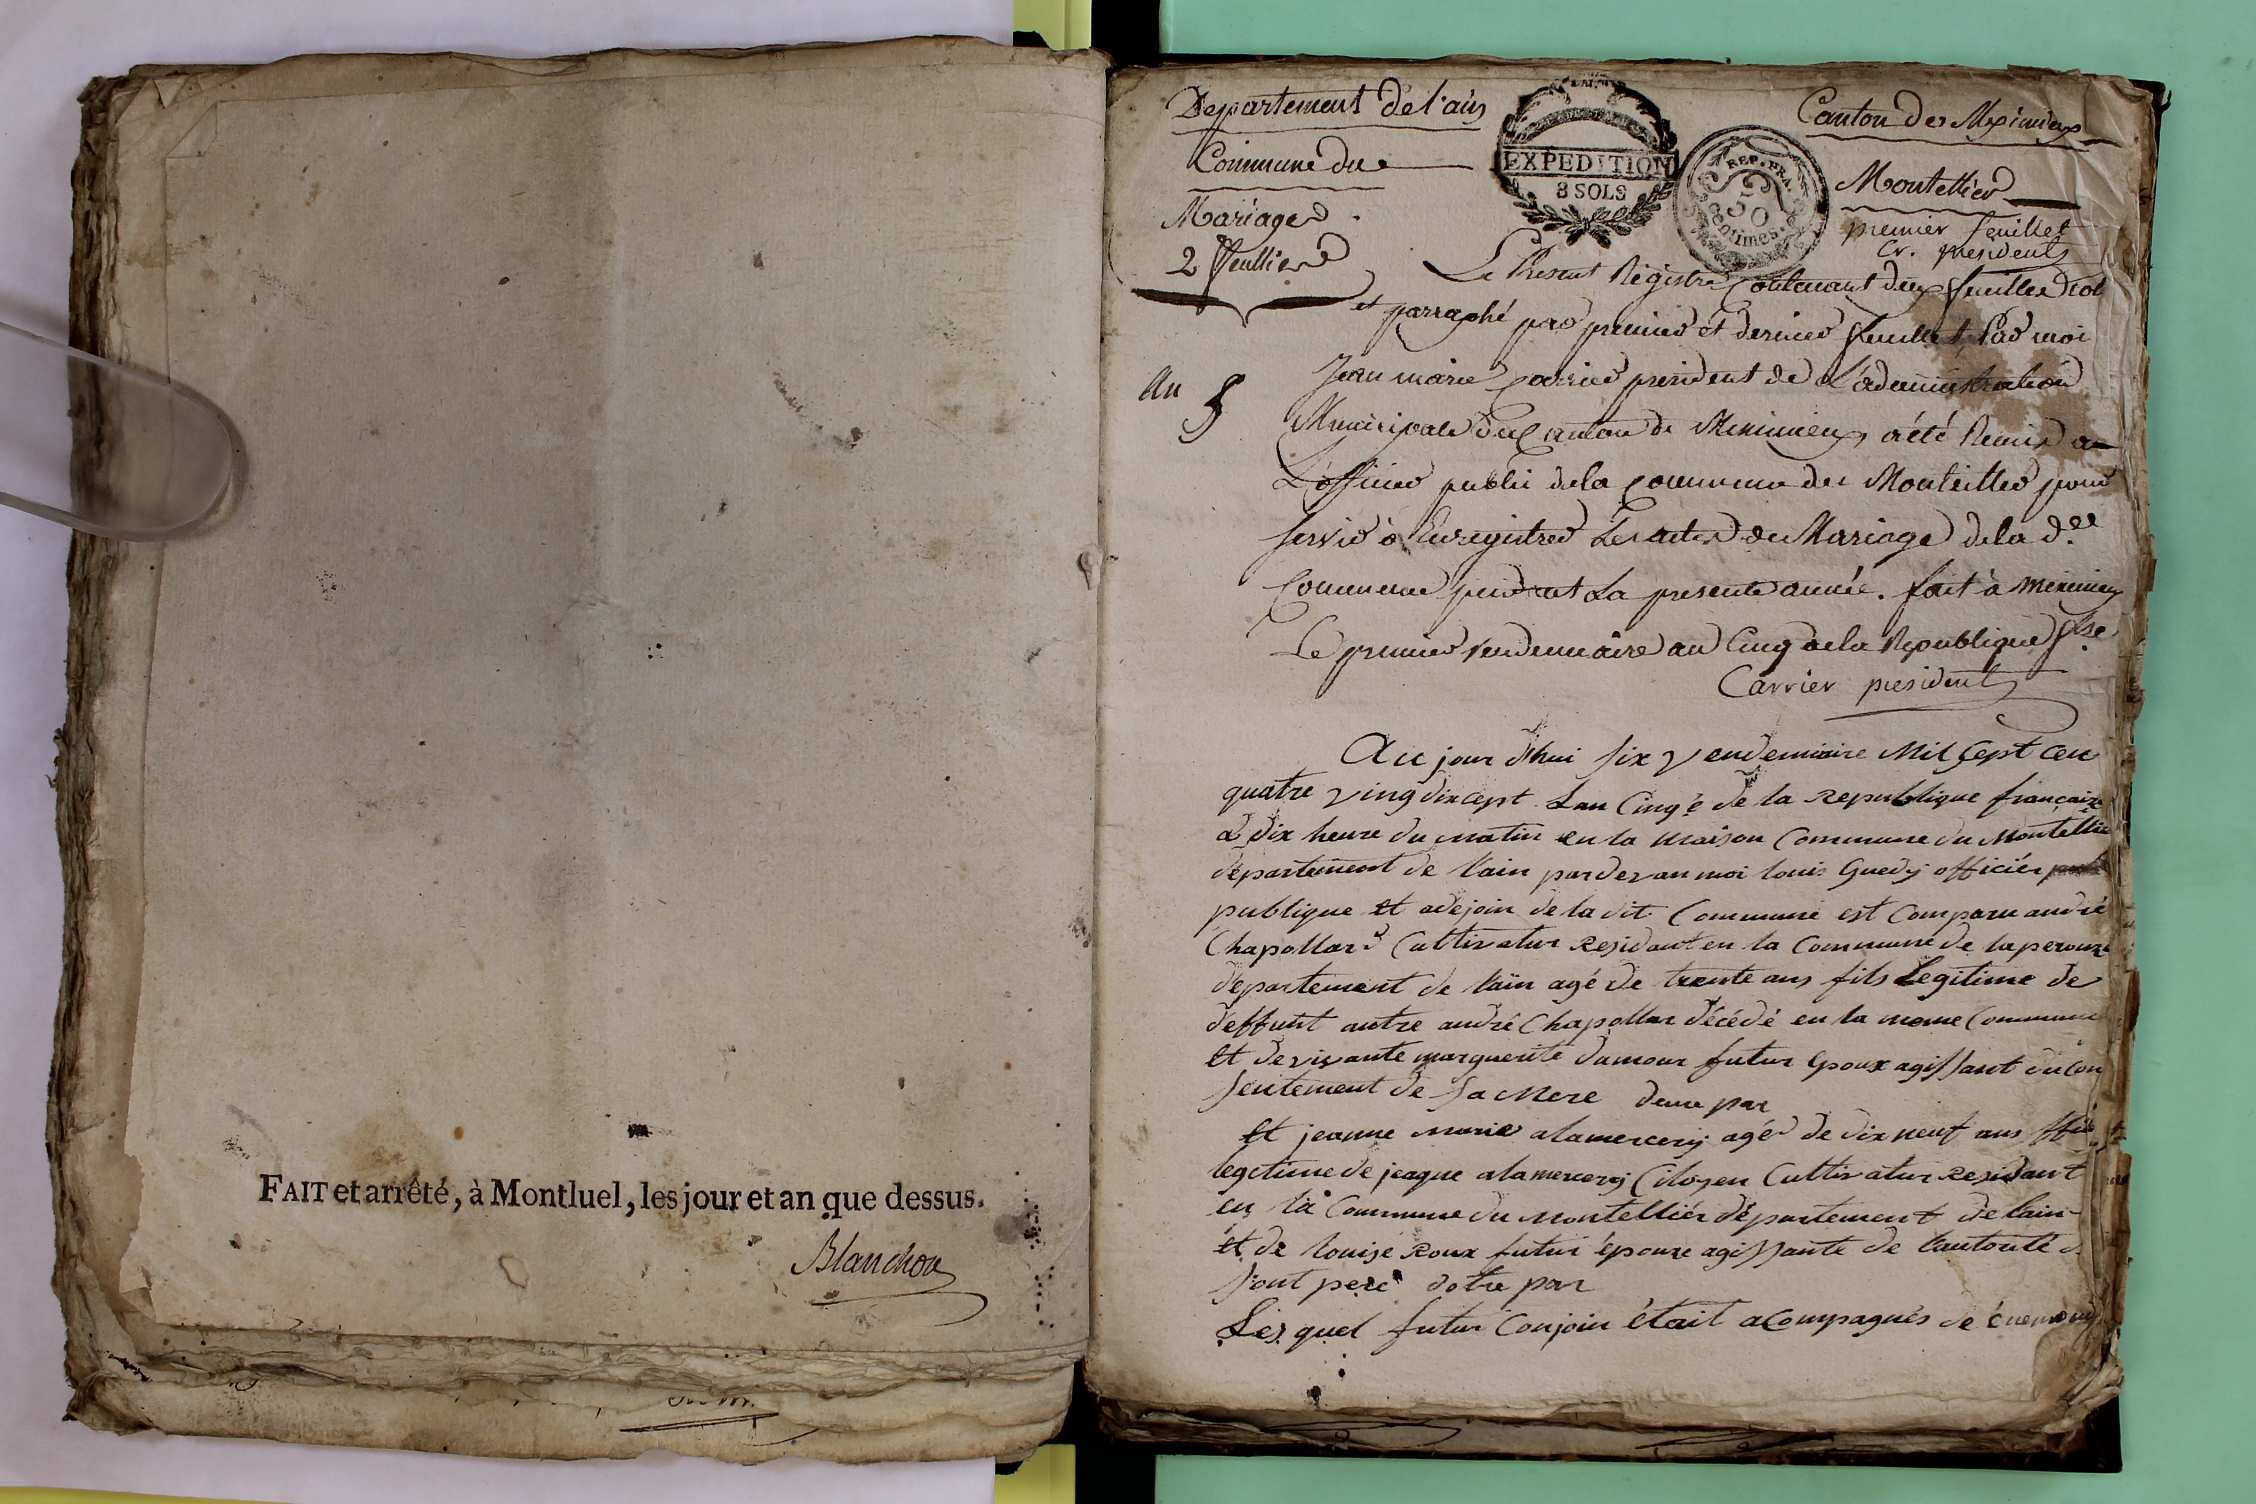 FAIT et arrêté, à Montluel, les jour et an que dessus.
Blanchon
Departement de l'ain
Commune du
Mariage
2 ffeullets
EXPEDITION
8 SOLS
REP. FRA.
50
centimes.
Canton de Meximieux
Montellier
premier feuillet
Cr. president
Le Present Régistre Contenant deux feuilles cot
et parraphé par premier et dernier feuillet, Par moi
An 5
Jean marie Carrier president de L'administration
Municipale du Canton de Meximieux a été Remis a
L'officier public de la commune du Monteiller pour
servir à Enregistrer Les actes de Mariage de la d.ee
Commune pendant La presente année. fait à meximieux
Le premier vendemiaire an Cinq de la Republique f.se
Carrier president
Au jour dhui six vendemiaire Mil Sept cen
quatre ving dix cept Lan Cinq.e de la Republique francaize
a dix heure du matin en la maison Commune du Montellie
departement de lain par devan moi louis Guedy officiér
publique et adejoin de la dit Commune est Comparu andré
Chapollard Cultivatur Residant en la Commune de laperouze
departement de lain agé de trente ans fils Legitime de
deffunt autre andré Chapollar décédé en la meme Commune
et de vivante marguerite damour futur époux agissant du con
sentement de sa Mere dune par
et jeanne marie alamercery agée de dix neuf ans ffille
legetime de jeaque alamercery Citoyen Cultivatur Residant
en la Commune du Montelliér département de lain
et de louise Roux futur épouze agissante de lautorité d
sont pere dotre par
Lez quel futur Conjoin était acompagnés de énemond